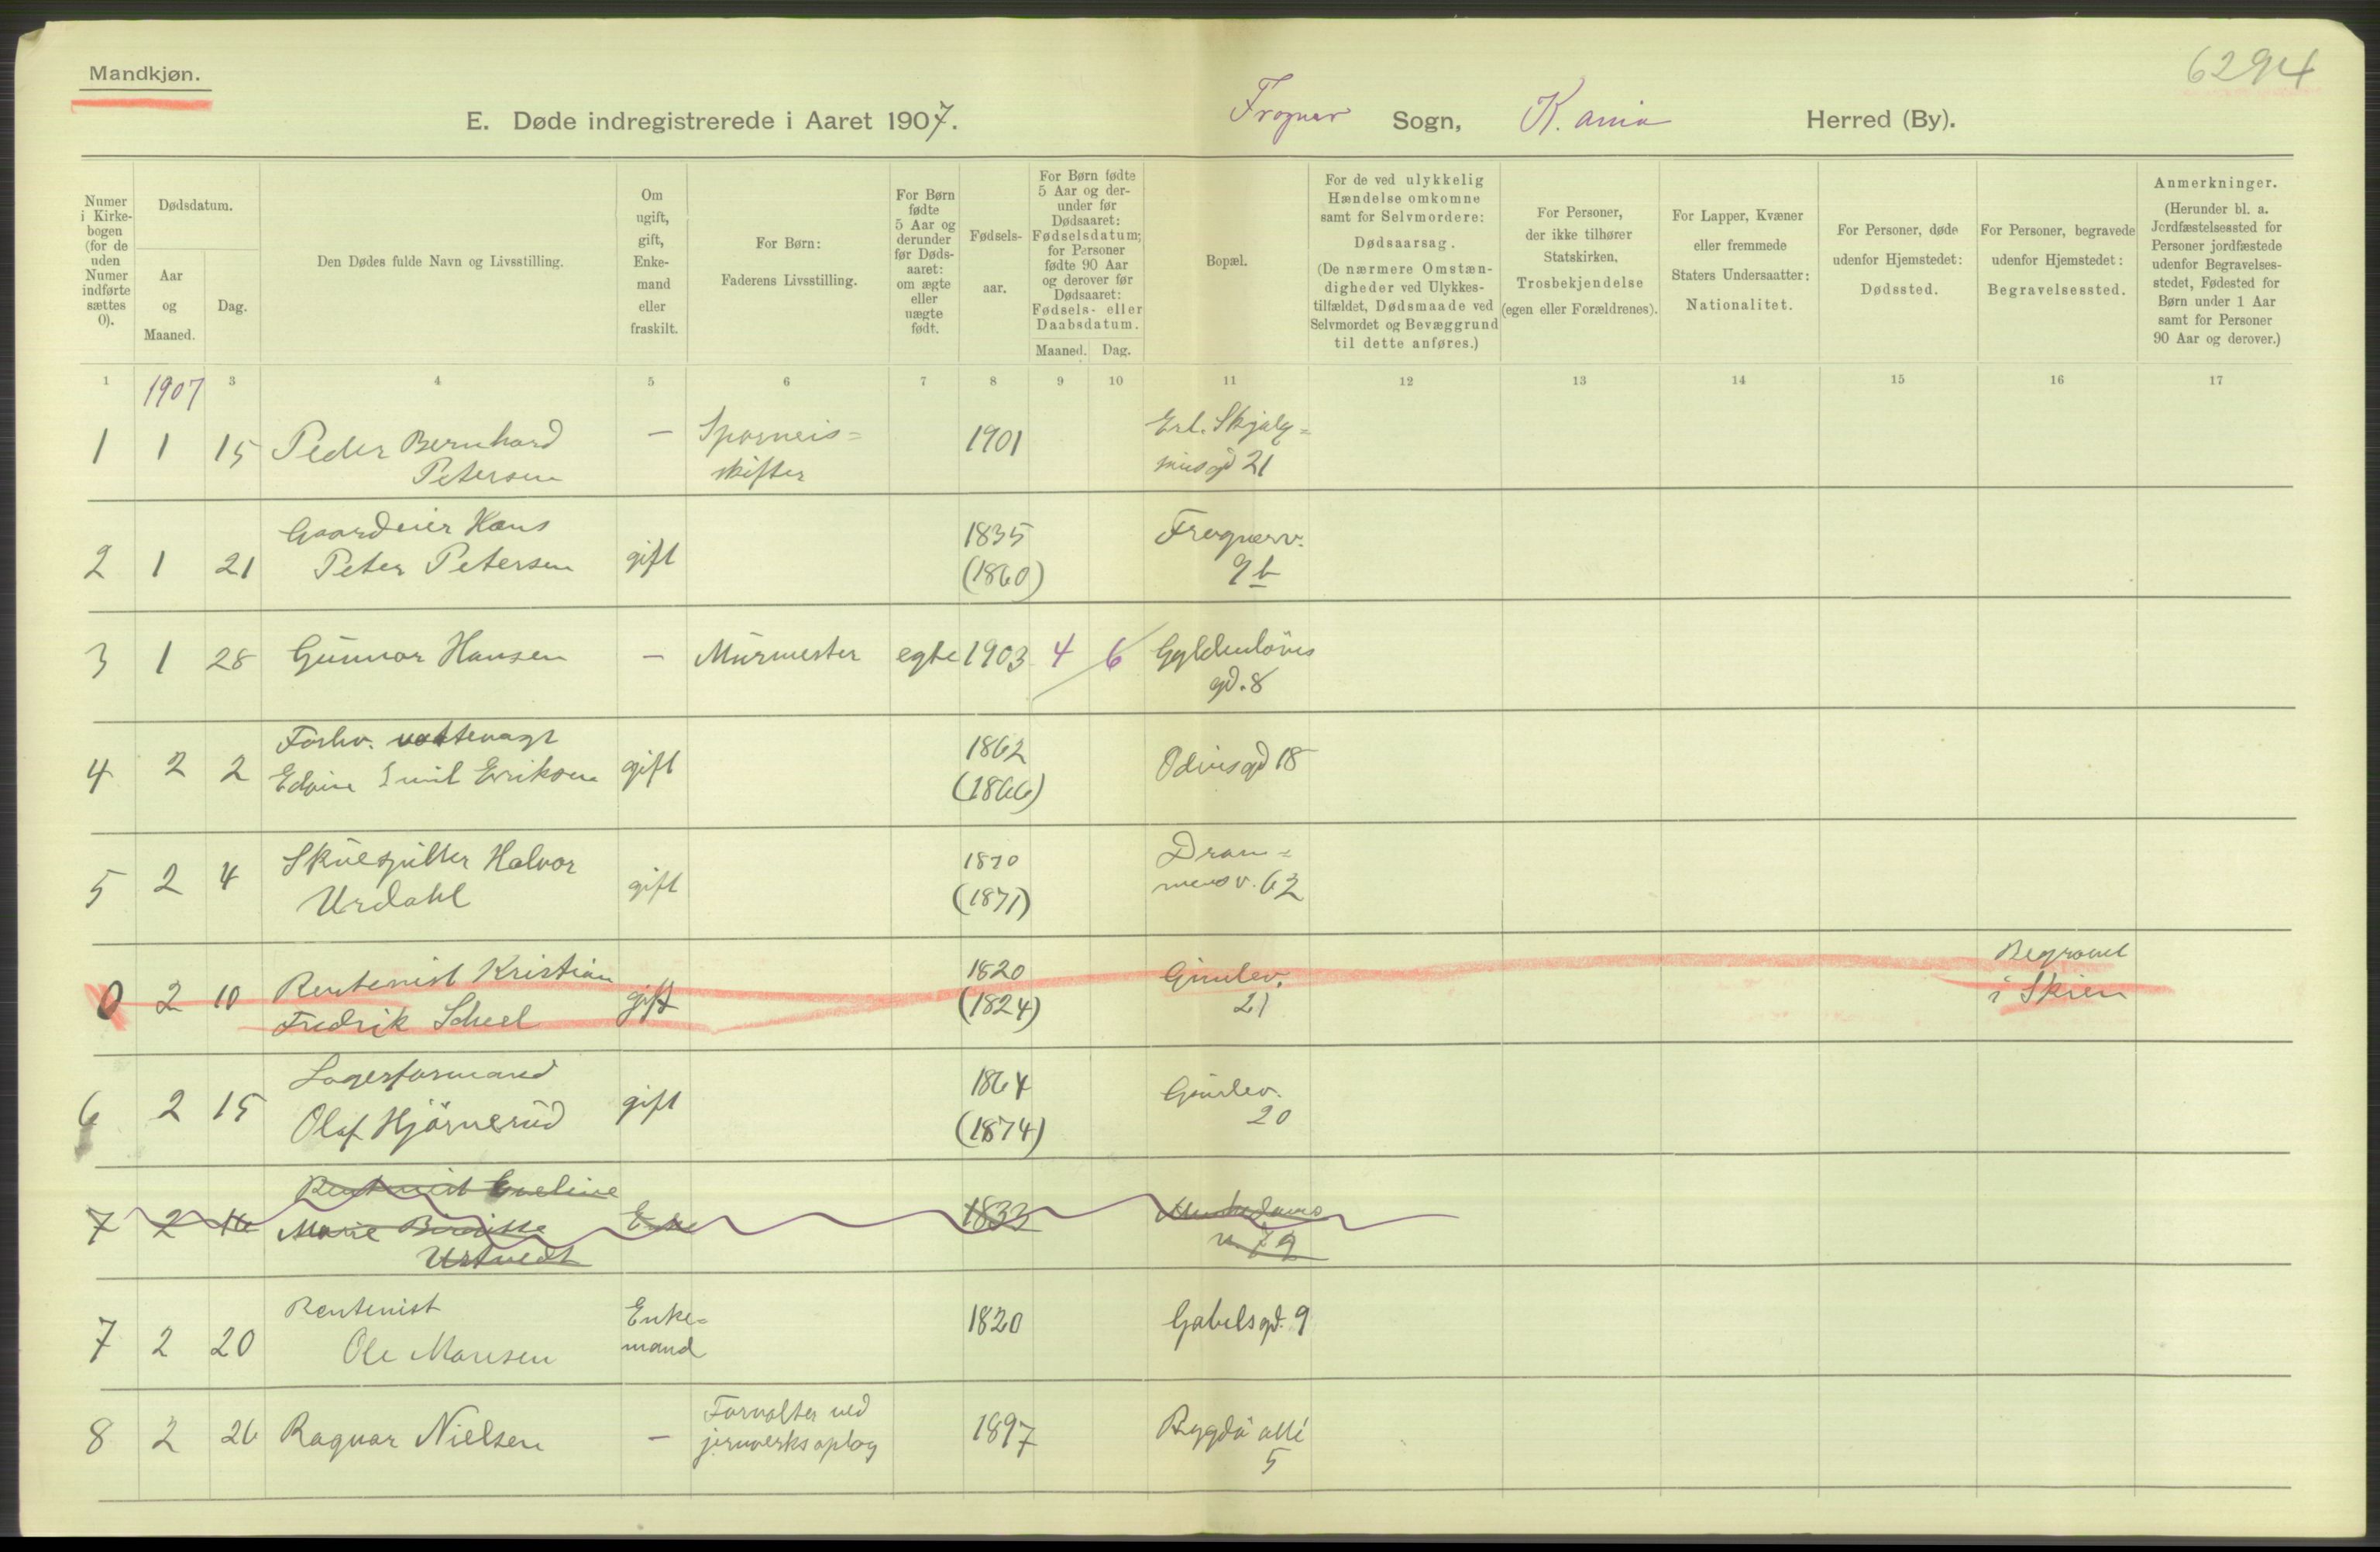 Mandkjøn.
6294
E. Døde indregistrerede i Aaret 1907. Frogner Sogn, K.ania Herred (By).
Numer
i Kirke-
bogen
(for de
uden
Numer
indførte
sættes
0).
Dødsdatum.
Aar
og
Maaned.
Dag.
Den Dødes fulde Navn og Livsstilling.
Om
ugift,
gift,
Enke-
mand
eller
fraskilt.
For Børn:
Faderens Livsstilling.
For Børn
fødte
5 Aar og
derunder
før Døds-
aaret:
om ægte
eller
uægte
født.
Fødsels-
aar.
For Børn fødte
5 Aar og der-
under før
Dødsaaret:
Fødselsdatum;
for Personer
fødte 90 Aar
og derover før
Dødsaaret:
Fødsels- eller
Daabsdatum.
Maaned. Dag.
Bopæl.
For de ved ulykkelig
Hændelse omkomne
samt for Selvmordere:
Dødsaarsag.
(De nærmere Omstæn-
digheder ved Ulykkes-
tilfældet, Dødsmaade ved
Selvmordet og Bevæggrund
til dette anføres.)
For Personer,
der ikke tilhører
Statskirken,
Trosbekjendelse
(egen eller Forældrenes).
For Lapper, Kvæner
eller fremmede
Staters Undersaatter:
Nationalitet.
For Personer, døde
udenfor Hjemstedet:
Dødssted.
For Personer, begravede
udenfor Hjemstedet:
Begravelsessted.
Anmerkninger.
(Herunder bl. a.
Jordfæstelsessted for
Personer jordfæstede
udenfor Begravelses-
stedet, Fødested for
Børn under 1 Aar
samt for Personer
90 Aar og derover.)
1 1907 3 4 5 6 7 8 9 10 11 12 13 14 15 16 17
1 1 15 Peder Bernhard — Sporveis= 1901 Erl. Skjalg=
Petersen skifter sønsgd 21
Gaardeier Hans 1835 Frognerv.
2 1 21 Peter Petersen gift (1860) 9b
3 1 28 Gunnar Hansen — Murmester egte 1903 4 6 Gyldenløves
gd. 8
Forhv. 1862
4 2 2 Edvin Emil Eriksen gift (1866) Odinsgd 18
Skuespiller Halvor 1870 Dram=
5 2 4 Urdahl gift (1871) mensv. 62
Rentenist Kristian 1820 Gimlev. Begravet
0 2 10 Fredrik Scheel gift (1824) 21 i Skien
Lagerformand 1864 Gimlev.
6 2 15 Olaf Hjörnerud gift (1874) 20
Rentenist Eveline
7 2 16 Marie Birgitte Enke 1833 Munkedams
Urtvedt v. 79
Rentenist Enke=
7 2 20 Ole Monsen mand 1820 Gabelsgd. 9
Forvalter ved
8 2 26 Ragnar Nielsen — jernverksoplag 1897 Bygdö allé
5